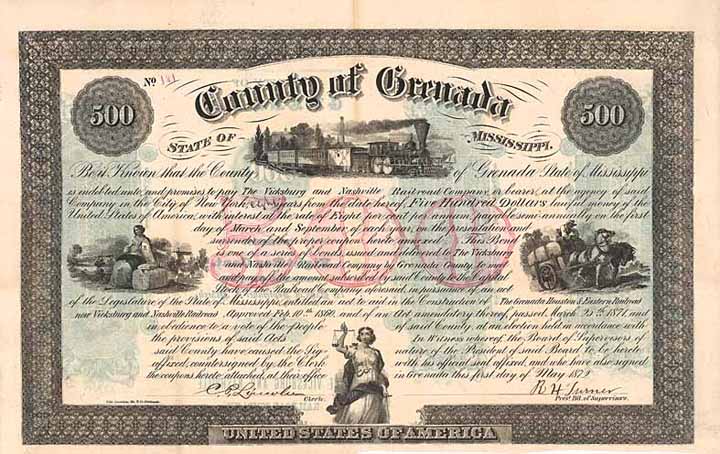 No 191
500
County of Grenada
500
STATE OF
MISSISSIPPI.
Be it Known that the County of Grenada State of Mississippi
is indebted unto, and promises to pay The Vicksburg and Nashville Railroad Company or bearer, at the agency of said
Company in the City of New York, years from the date hereof, Five Hundred Dollars lawful money of the
United States of America, with interest at the rate of Eight per cent per annum, payable semi-annually on the first
day of March and September of each year, on the presentation and
surrender of the proper coupon hereto annexed. This Bond
is one of a series of bonds, issued and delivered to The Vicksburg
and Nashville Railroad Company by Grenada County, to
and pay off the amount subscribed by said County to the Capital
Stock of the Railroad Company aforesaid, in pursuance of an act
of the Legislature of the State of Mississippi, entitled an act to aid in the Construction of The Grenada Houston & Eastern Railroad
now Vicksburg and Nashville Railroad Approved Feb. 10th 1860. and of an Act amendatory thereof, passed March 25th 1871, and
in obedience to a vote of the people of said County at an election held in accordance with
the provisions of said Acts In Witness whereof, the Board of Supervisors of
said County have caused the Signature of the President of said Board to be hereto
affixed, countersigned by the Clerk with his official seal affixed, and who have also signed
the coupons hereto attached, at their office in Grenada this first day of May 187
Clerk.
R H Turner
Prest. Bd. of Supervisors.
UNITED STATES OF AMERICA